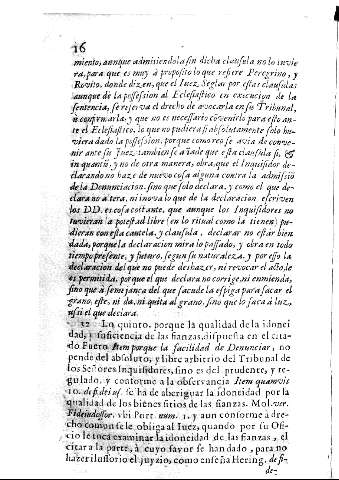 16
miento, aunque admitiendola sin dicha clausula no lo huvie
ra, para que es muy à proposito lo que refiere Peregrino, y
Rovito, donde dizen, que el Iuez Seglar por estas clausulas
aunque de la possession al Eclesiastico en execucion de la
sentencia, se reserva el drecho de avocarla en su Tribunal,
ò confirmarla, y que no es necessario convenirlo para esto an-
te el Eclesiastico, lo que no pudiera si absolutamente solo hu-
viera dado la possession, porque como reo se avia de conve-
nir ante su Iuez: tambien se añade que esta clausula si, &
in quantũ, y no de otra manera, obra, que el Inquisidor de-
clarando no haze de nuevo cosa alguna contra la admissiõ
de la Denunciacion, sino que solo declara, y como el que de-
clara no altera, ni inova lo que de la declaracion escriven
los DD. es cosa constante, que aunque los Inquisidores no
tuvieran la potestad libre en lo ritual como la tienen; pu-
dieran con esta cautela, y clausula, declarar no estàr bien
dada, porque la declaracion mira lo passado, y obra en todo
tiempo presente, y futuro, segun su naturaleza, y por esso la
declaracion del que no puede deshazer, ni revocar el acto, le
es permitida, porque el que declara no corrige, ni enmienda,
sino que à semejança del que sacude la espiga para sacar el
grano, este, ni da, ni quita al grano, sino que lo saca à luz,
assi el que declara.
32 Lo quinto, porque la qualidad de la idonei
dad, y suficiencia de las fianzas, dispuesta en el cita-
do Fuero Item porque la facilidad de Denunciar, no
pende del absoluto, y libre arbitrio del Tribunal de
los Señores Inquisidores, sino es del prudente, y re-
gulado, y conforme a la observancia Item quamvis
10. de
se ha de aberiguar la idoneidad por la
qualidad de los bienes sitios de las fianzas. Molin. ver.
Fidejussor. ubi Port. num. 1. y aun conforme a dre-
cho comun se le obliga al Iuez, quando por su Ofi-
cio le toca examinar la idoneidad de las fianzas, el
citar a la parte, à cuyo favor se han dado, para no
hazer ilusorio el juyzio, como enseña Hering. de fi-
de-